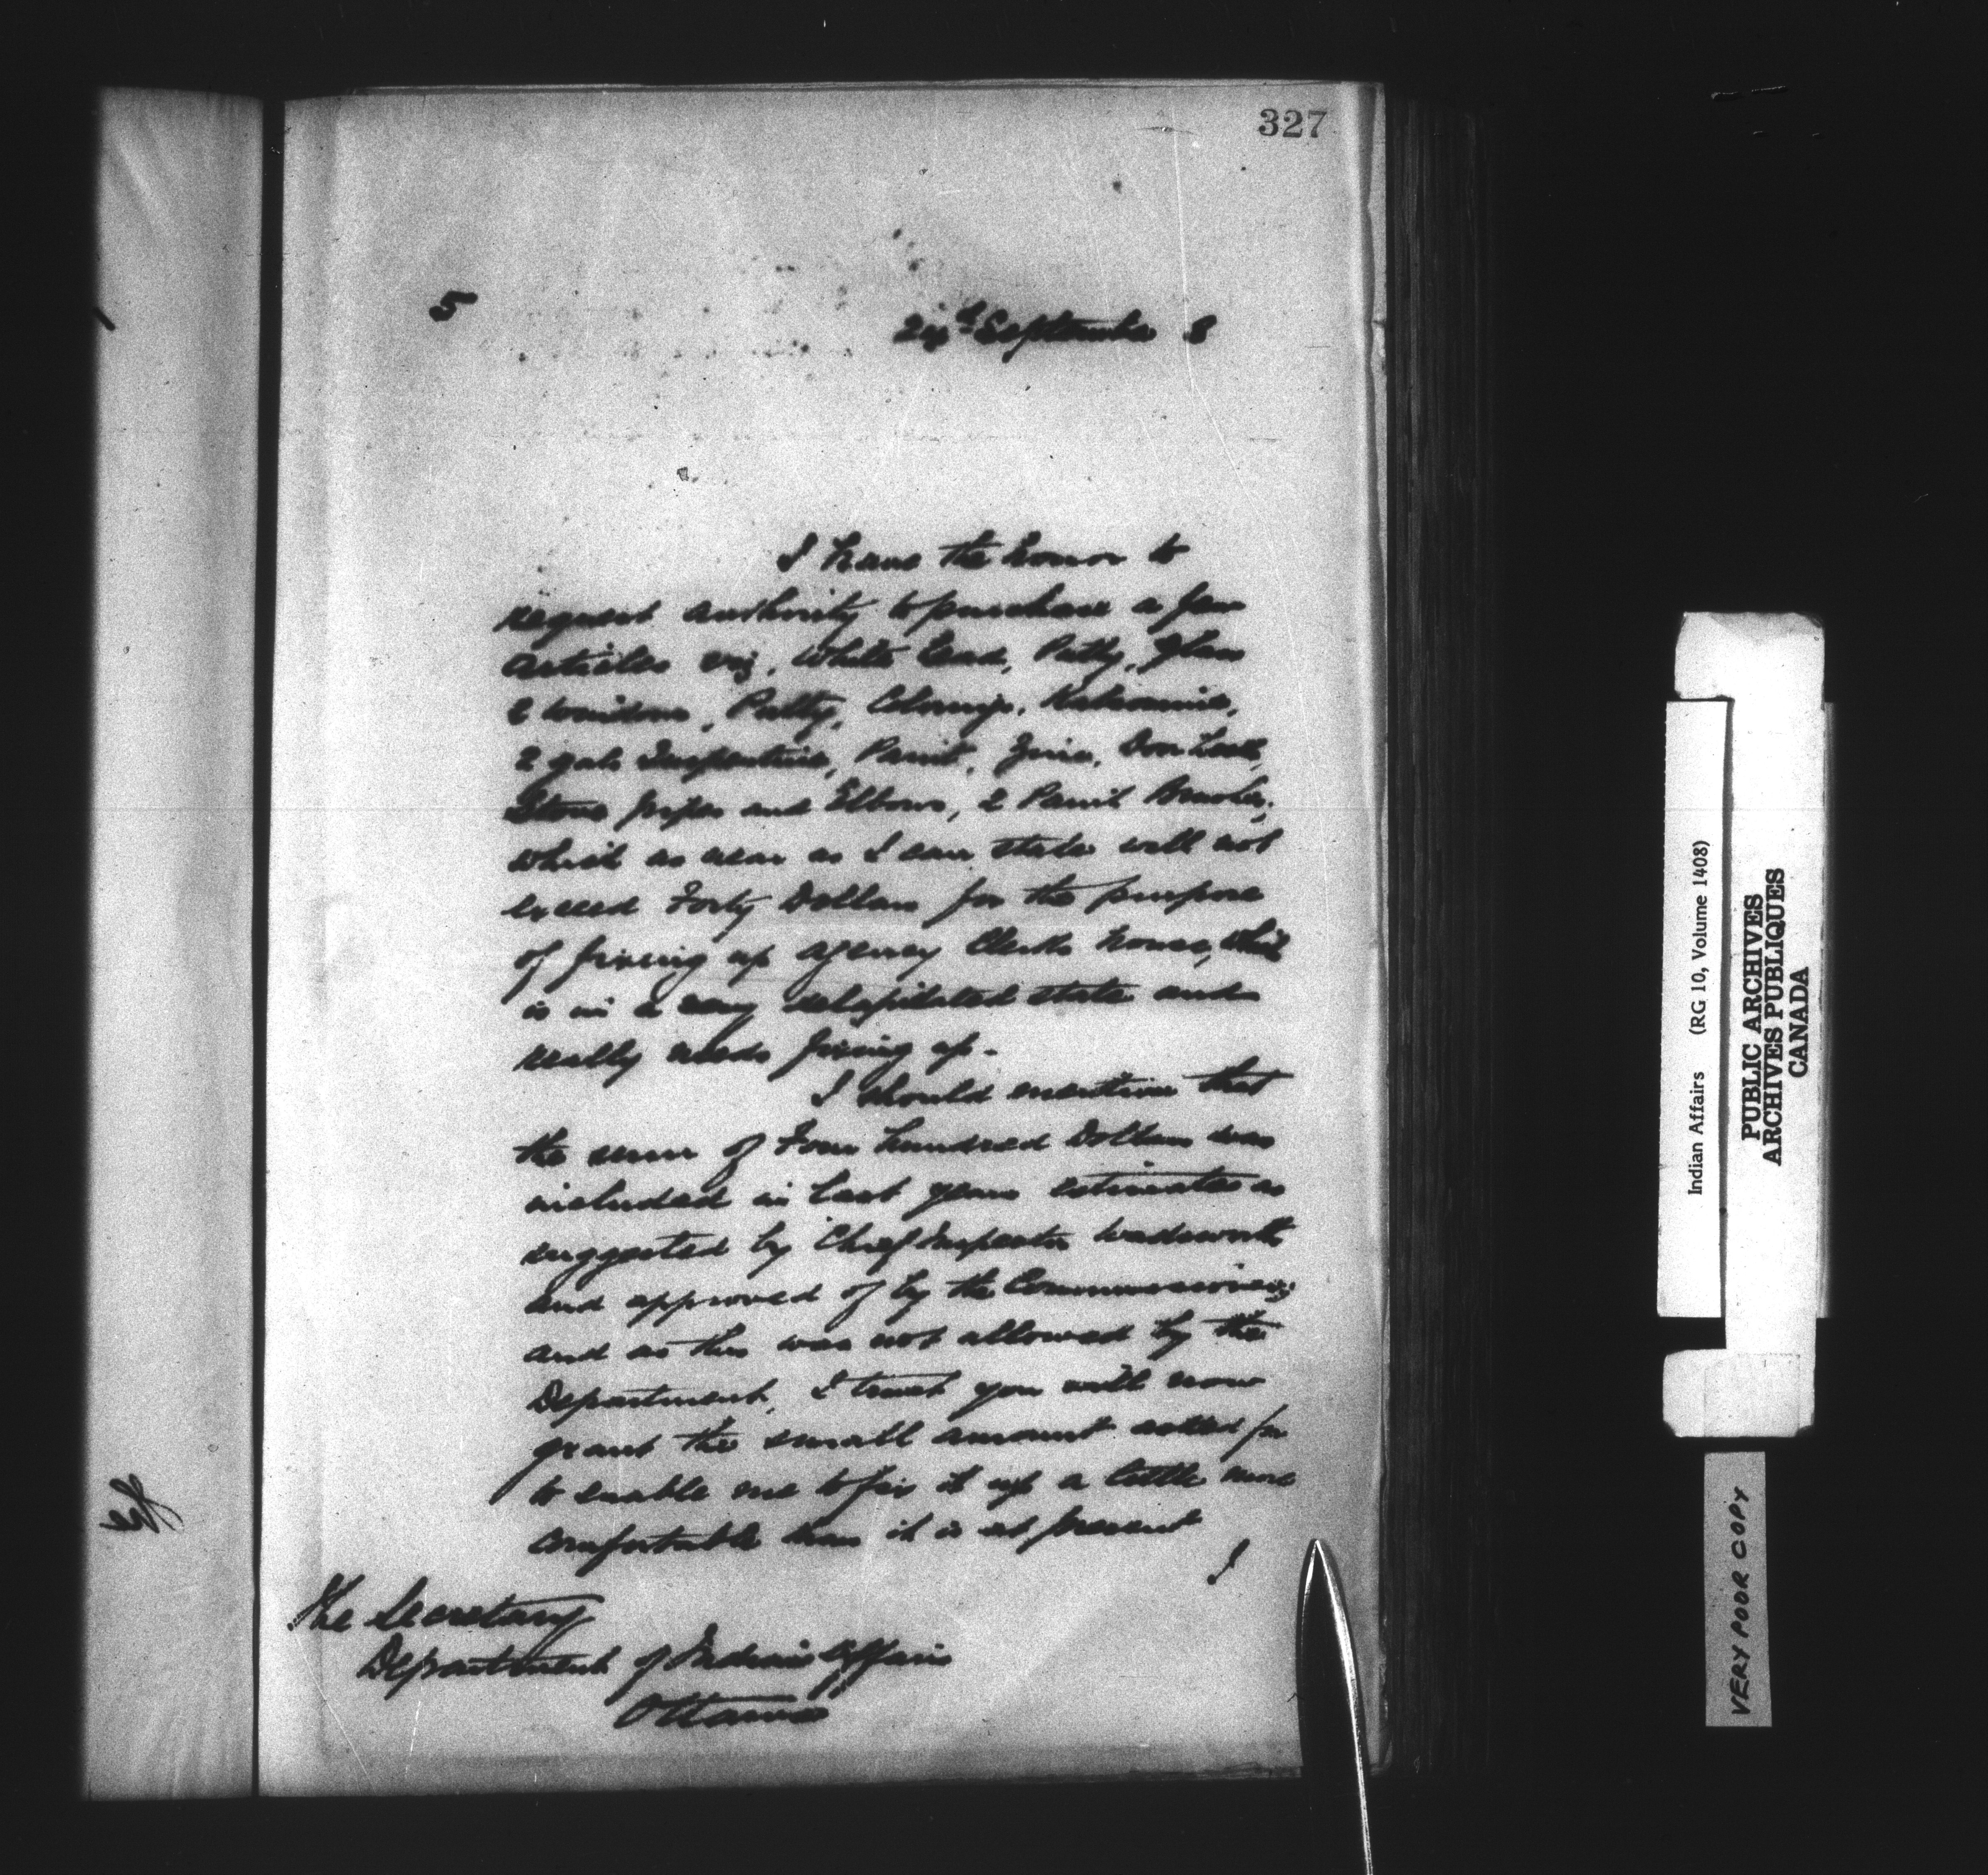 327
5
24th September 8
I have the honor to
request authority to purchase a few
articles viz. White Lead, Putty, Glass
2 windows, Putty, Colorings, Kalsomine,
2 gals Turpentine, Paint, Zinc, Door Lock,
Stove pipes and Elbows, 2 Paint Brushes,
which as near as I can state will not
exceed Forty Dollars for the purpose
of fixing up Agency Clerks house, which
is in a very delapidated state and
really needs fixing up.
I should mention that
the sum of Four hundred Dollars was
included in last years estimates as
suggested by Chief Inspector Wadsworth
and approved of by the Commissioner,
and as this was not allowed by the
Department, I trust you will now
grant the small amount asked for
to enable me to fix it up a little more
comfortable than it is at present
The Secretary
Department of Indian Affairs
Ottawa
Indian Affairs (RG 10, Volume 1408)
PUBLIC ARCHIVES
ARCHIVES PUBLIQUES
CANADA
VERY POOR COPY